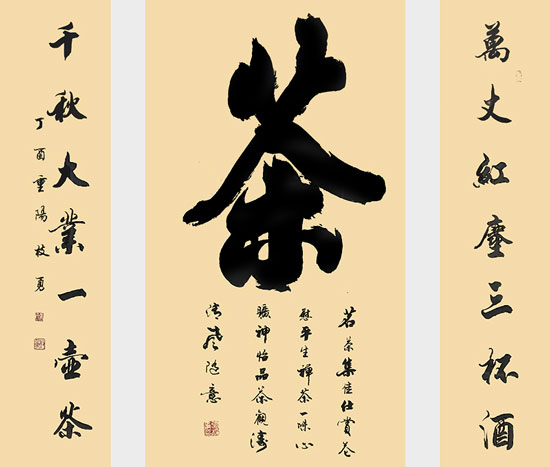 萬丈紅塵三杯酒
茶
茗茶集佳仕賞卷
慰平生禪茶一味心
曠神怡品茶觀濤
清風隨意
千秋大業一壺茶
丁酉重陽枝勇